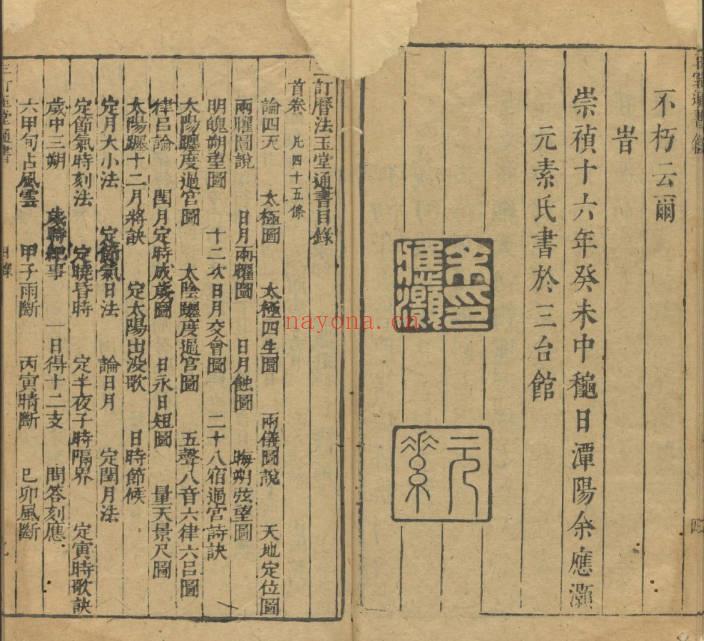 不朽云爾
旹
崇禎十六年癸未中龝日潭陽余應灝
元素氏書於三台館
余印應灝
元素
訂曆法玉堂通書目錄
首卷 凡四十五條
論四天 太極圖 太極四生圖 兩儀圖說 天地定位圖
兩曜圖說 日月兩曜圖 日月蝕圖 晦朔弦望圖
明魄朔望圖 十二次日月交會圖 二十八宿過宮詩訣
太陽躔度過宮圖 太陰躔度過宮圖 五聲八音六律六呂圖
律呂論 閏月定時成歲圖 日永日短圖 量天景尺圖
太陽躔十二月將訣 定太陽出没歌 日時節候
定月大小法 定節氣日法 論日月 定閏月法
定節氣時刻法 定曉昏時 定半夜子時隔界 定寅時歌訣
歲中三朔 歲時紀事 一日得十二支 問答刻應
六甲旬占風雲 甲子雨斷 丙寅晴斷 巳卯風斷
三訂玉堂通書
nayona.cn